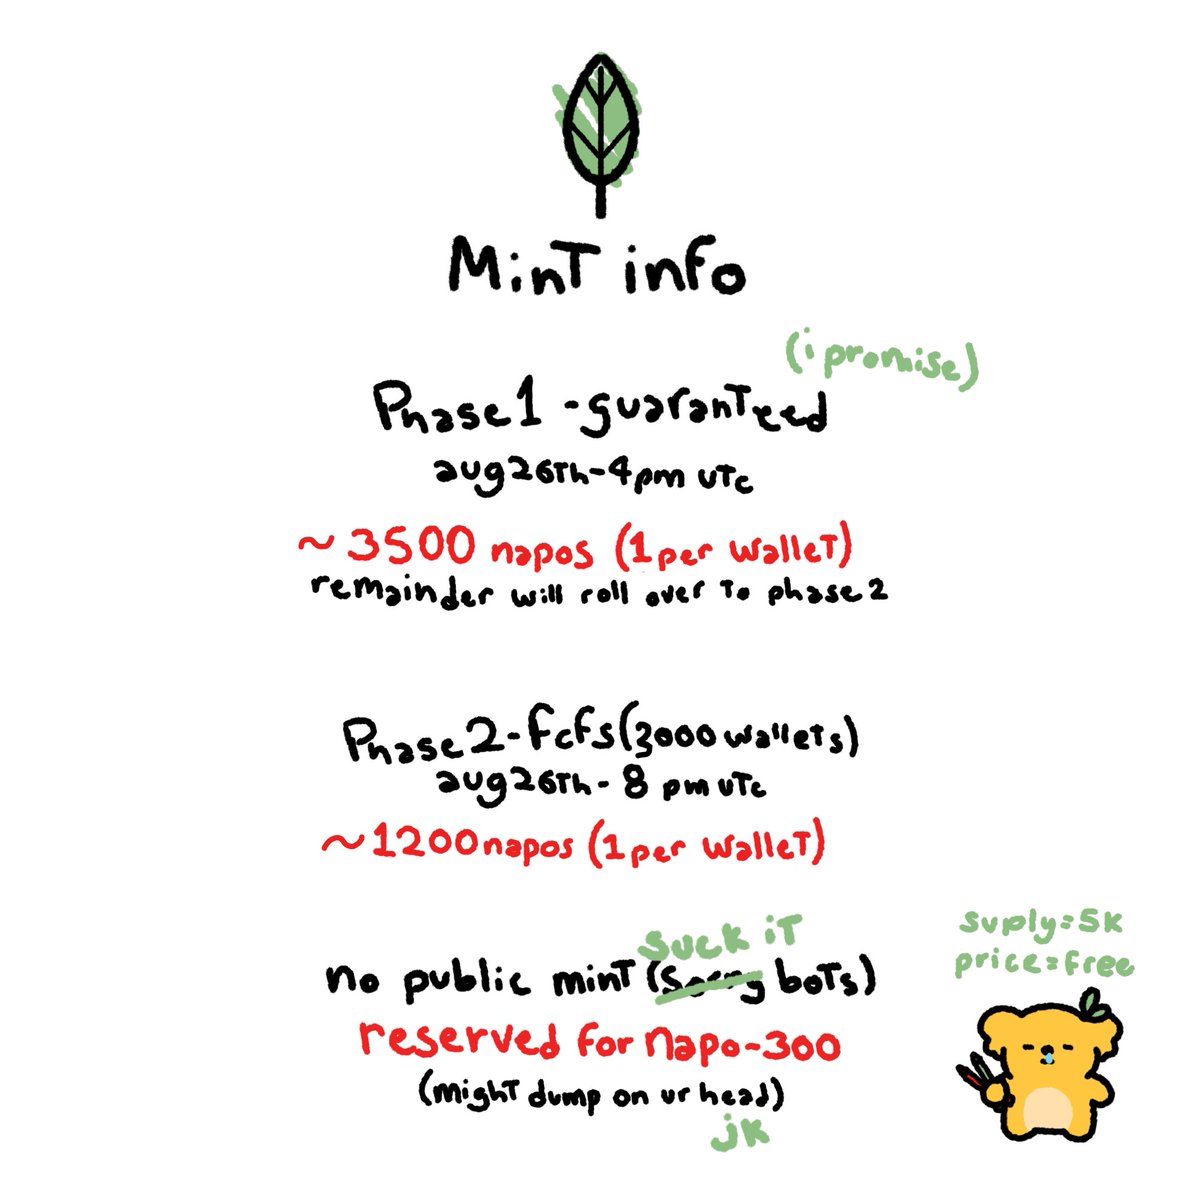 MinT info
(i promise)
Phase 1 - guaranTeed
aug 26Th - 4pm uTc
~ 3500 napos (1 per walleT)
remainder will roll over To phase 2
Phase 2 - fcfs (3000 walleTs)
aug 26Th - 8 pm uTc
~ 1200 napos (1 per walleT)
suck iT
no public minT (sorry boTs)
reserved for napo - 300
(mighT dump on ur head)
jk
suply = 5k
price = free